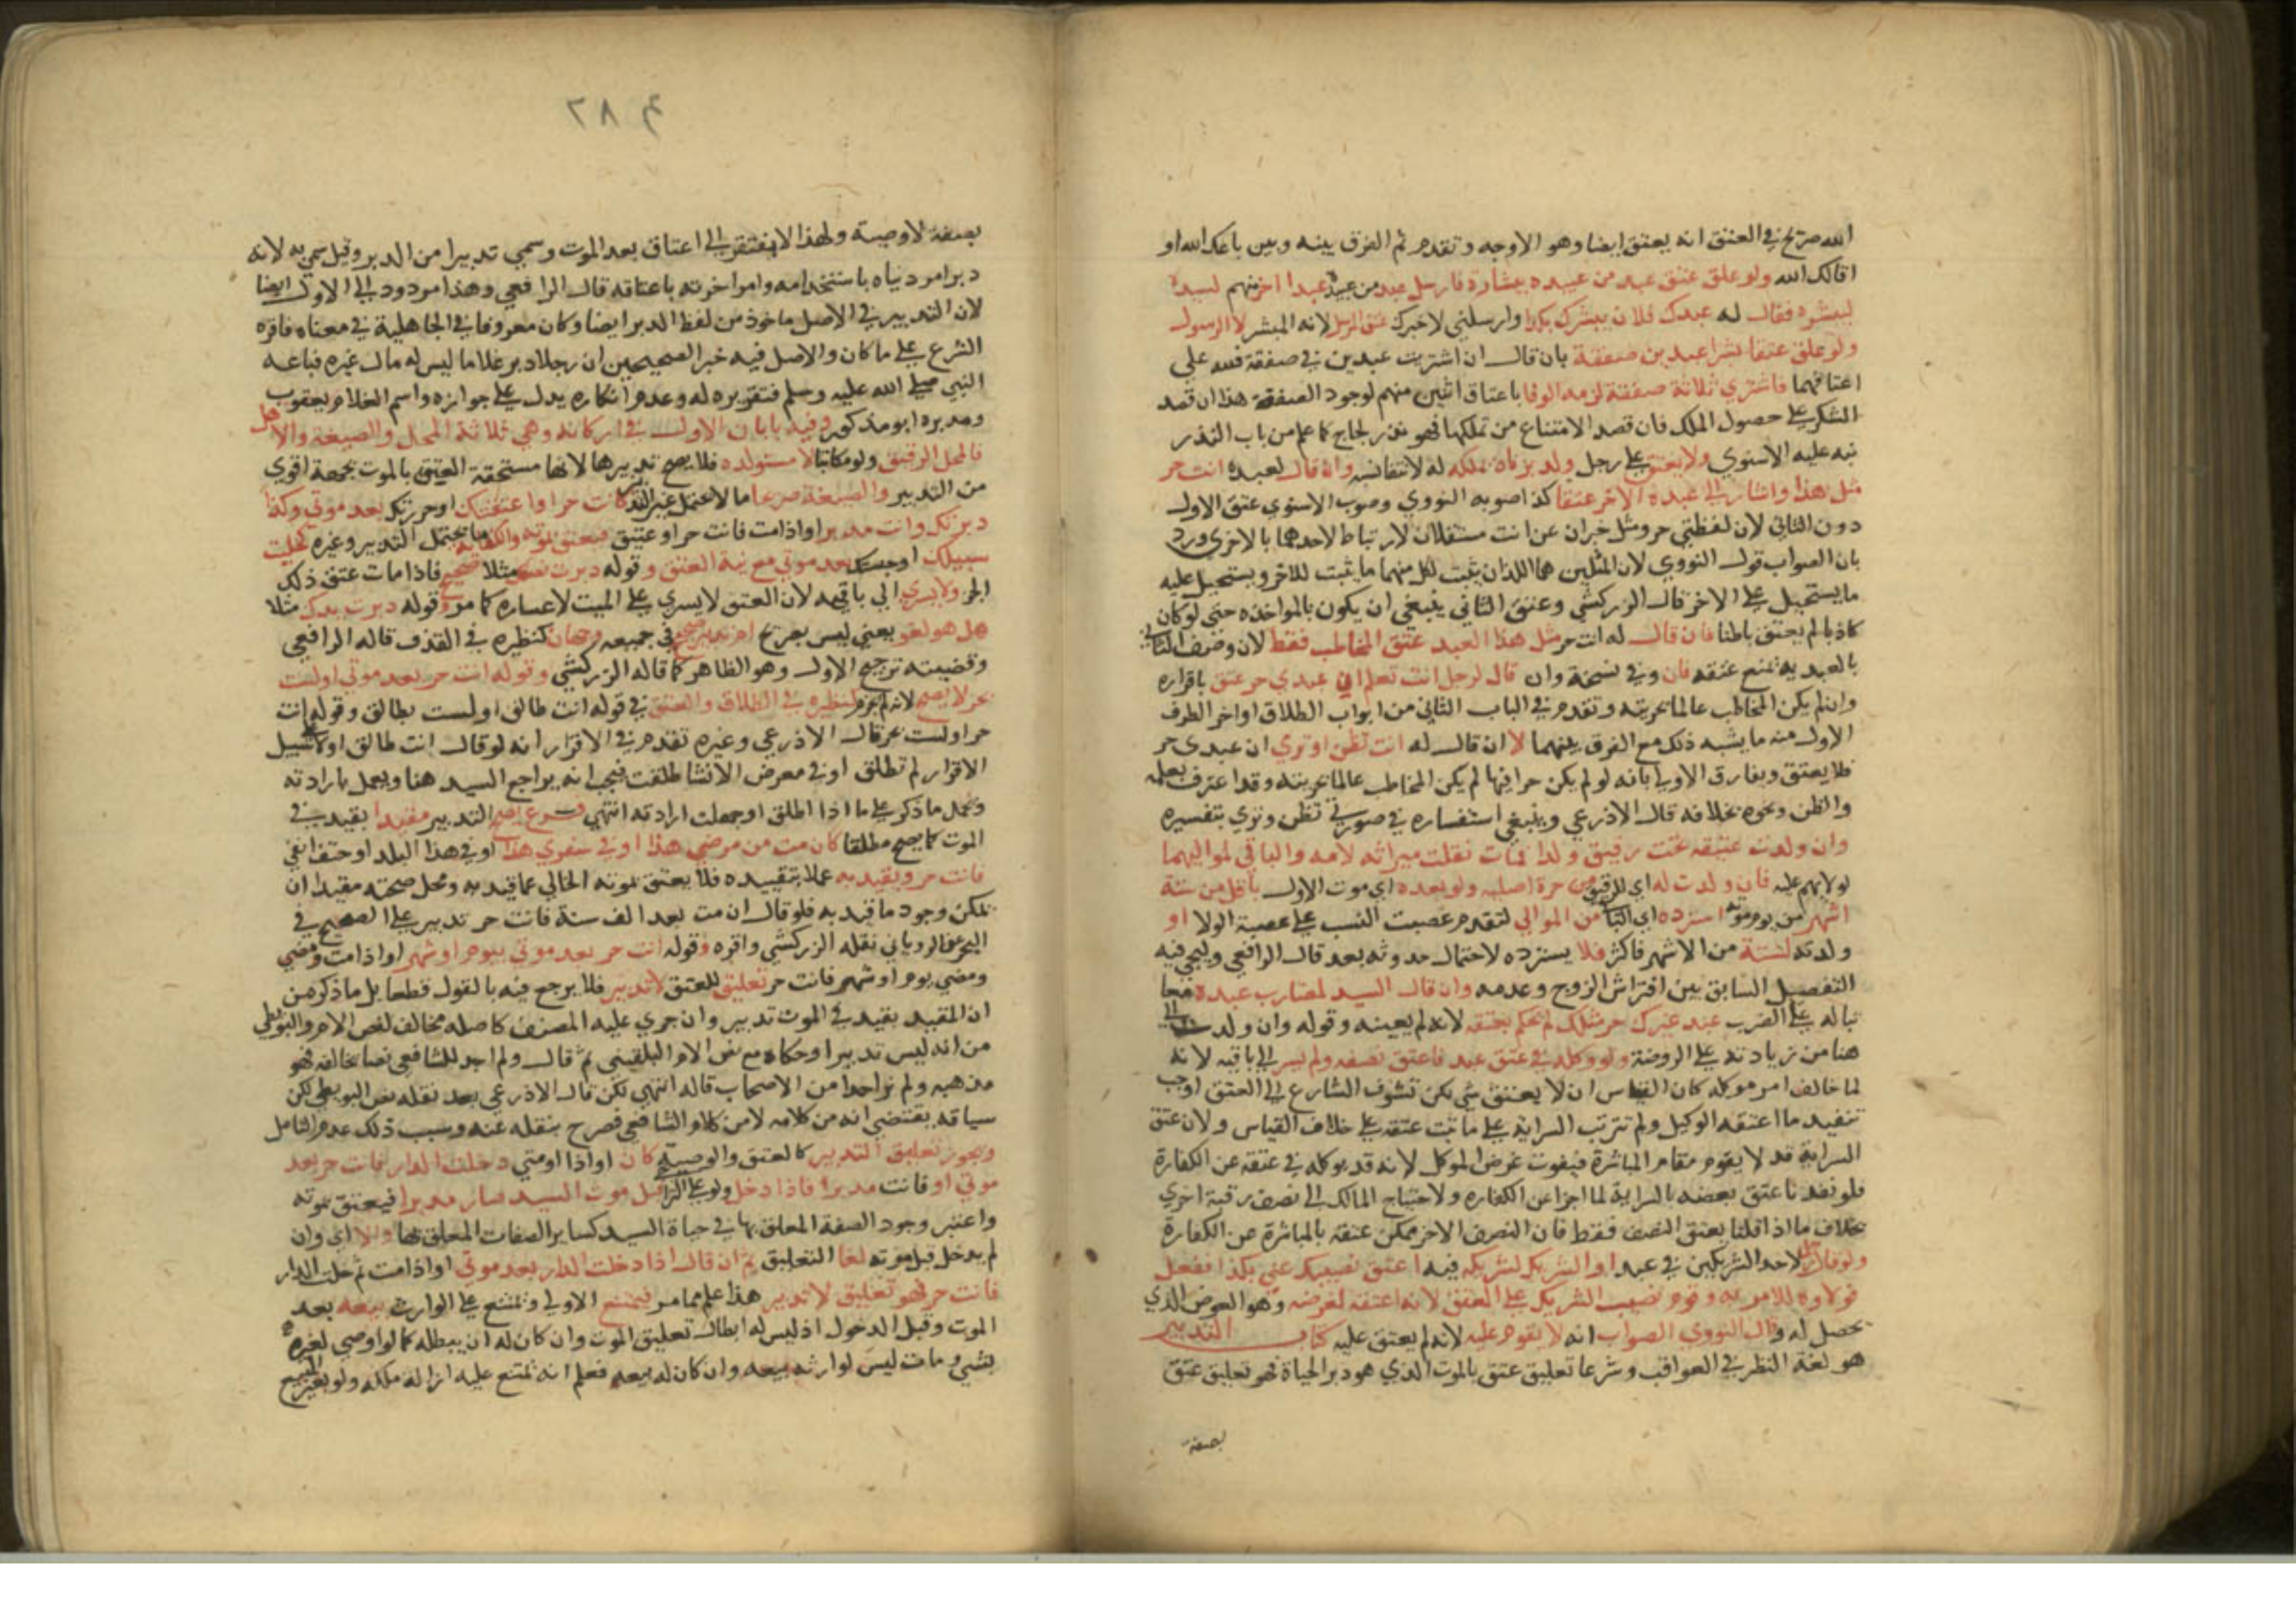 الله صريح في العتق انه يعتق ايضا وهو الاوجه وتقدم ثم الفرق بينه وبين باعك الله او
اقالك الله ولو علق عتق عبد من عبيده ببشارة فارسل عبد من عبيده عبدا اخر منهم لسيده
ليبشره فقال له عبدك فلان يبشرك بكذا وارسلني لاخبرك عتق المرسل لانه المبشر لا الرسول
ولو علق عتقا بشرا عبدين صفقة بان قال ان اشتريت عبدين في صفقة فلله علي
اعتاقهما فاشتري ثلاثة صفقة لزمه الوفا باعتاق اثنين منهم لوجود الصفقة هذا ان قصد
الشكر على حصول الملك فان قصد الامتناع من تملكها فهو نذر لجاج كما علم من باب النذر
نبه عليه الاسنوي ولا يعتق على رجل ولد زناه بملكه له لانتفا نسبه وان قال لعبده انت حر
مثل هذا واشار الى عبده الاخر عتقا كذا صوبه النووي وصوب الاسنوي عتق الاول
دون الثاني لان لفظتي حر ومثل خبران عن انت مستقلان لا ارتباط لاحدهما بالاخرى ورد
بان الصواب قول النووي لان المثلين هما اللذان يثبت لكل منهما ما يثبت للاخر ويستحيل عليه
ما يستحيل على الاخر قال الزركشي وعتق الثاني ينبغي ان يكون بالمواخذه حتى لو كان
كاذبا لم يعتق باطنا فان قال له انت حر مثل هذا العبد عتق المخاطب فقط لان وصف الثاني
بالعبد يمنع عتقه فان وفي نسخة وان قال لرجل انت تعلم ان عبدي حر عتق باقراره
وان لم يكن المخاطب عالما بحريته وتقدم في الباب الثاني من ابواب الطلاق اواخر الطرف
الاول منه ما يشبه ذلك مع الفرق بينهما لا ان قال له انت تظن او ترى ان عبدى حر
فلا يعتق ويفارق الاولى بانه لو لم يكن حرا فيها لم يكن المخاطب عالما بحريته وقد اعترف بعلمه
والظن ونحوه بخلافه قال الاذرعي وينبغي استفساره في صورتي تظن وترى بتفسيره
وان ولدت عتيقه تحت رقيق ولدا فمات نقلت ميراثه لامه والباقي لمواليهما
لولايهم عليه فان ولدت له اي للرقيق من حرة اصليه ولو بعده اي موت الاول باقل من ستة
اشهر من يوم موته استرده اي الباقي من الموالي لتقدم عصبة النسب على عصبة الولا او
ولدته لستة من الاشهر فاكثر فلا يسترده لاحتمال حدوثه بعد قال الرافعي وليجي فيه
التفصيل السابق بين افتراش الزوج وعدمه وان قال السيد لضارب عبده معا
تباله على الضرب عبد غيرك حر مثلك لم نحكم بعتقه لانه لم يعينه وقوله وان ولدت الى
هنا من زيادته على الروضة ولو وكله في عتق عبد فاعتق نصفه ولم يسر الى باقيه لانه
لما خالف امر موكله كان القياس ان لا يعتق شي لكن تشوف الشارع الى العتق اوجب
تنفيذ ما اعتقه الوكيل ولم تترتب السراية على ما ثبت عتقه على خلاف القياس ولان عتق
السراية قد لا يقوم مقام المباشرة فيفوت غرض الموكل لانه قد يوكله في عتقه عن الكفارة
فلو نفذنا عتق بعضه بالسراية لما اجزا عن الكفاره ولاحتاج المالك الى نصف رقبة اخرى
بخلاف ما اذا قلنا يعتق النصف فقط فان النصف الاخر ممكن عتقه بالمباشرة عن الكفارة
ولو قال رجل لاحد الشريكين في عبد او الشريك لشريكه فيه اعتق نصيبك عني بكذا ففعل
فولاوه للامر به وقوم نصيب الشريك على المعتق لانه اعتقه لغرضه وهو العوض الذي
حصل له وقال النووي الصواب انه لا يقوم عليه لانه لم يعتق عليه كتاب التدبير
هو لغة النظر في العواقب وشرعا تعليق عتق بالموت الذي هو دبر الحياة فهو تعليق عتق
بصفة
٢٨ م
بصفة لا وصية ولهذا لا يفتقر الى اعتاق بعد الموت وسمي تدبيرا من الدبر وقيل سمي به لانه
دبر امر دنياه باستخدامه وامر اخرته باعتاقه قال الرافعي وهذا مردود الى الاول ايضا
لان التدبير في الاصل ماخوذ من لفظ الدبر ايضا وكان معروفا في الجاهلية في معناه فاقره
الشرع على ما كان والاصل فيه خبر الصحيحين ان رجلا دبر غلاما ليس له مال غيره فباعه
النبي صلى الله عليه وسلم فتقريره له وعدم انكاره يدل على جوازه واسم الغلام يعقوب
ومدبره ابو مذكور وفيه بابان الاول في اركانه وهي ثلاثة المحل والصيغة والاهل
فالمحل الرقيق ولو مكاتبا لا مستولده فلا يصح تدبيرها لانها مستحقة العتق بالموت بجهة اقوى
من التدبير والصيغة صرعا ما لا يحتمل غير التدبير كانت حر او اعتقتك او حررتك بعد موتي وكذا
دبرتك وانت مدبر او اذا مت فانت حر او عتيق فيعتق بموته والكناية ما يحتمل التدبير وغيره كخليت
سبيلك او حبستك بعد موتي مع نية العتق وقوله دبرت نصفك مثلا صحيح فاذا مات عتق ذلك
الجز ولا يسري الى باقيه لان العتق لا يسري على الميت لاعساره كما مر وقوله دبرت يدك مثلا
هل هو لغو يعني ليس بصريح ام تدبير صحيح في جميعه وجهان كنظيره في القذف قاله الرافعي
وقضيته ترجيح الاول وهو الظاهر كما قاله الزركشي وقوله انت حر بعد موتي او لست
بحر لا يصح لانه لم يجزم كنظيره في الطلاق والعتق في قوله انت طالق او لست بطالق وقوله انت
حر او لست بحر قال الاذرعي وغيره تقدم في الاقرار انه لو قال انت طالق او لا على سبيل
الاقرار لم تطلق او في معرض الانشا طلقت فيجب انه يراجع السيد هنا ويعمل بارادته
ونحمل ما ذكر على ما اذا اطلق او جهلت ارادته انتهي فرع يصح التدبير مقيدا بقيد في
الموت كما يصح مطلقا كان مت من مرضي هذا او في سفري هذا او في هذا البلد او حتف انفي
فانت حر ويقيد به عملا بتقييده فلا يعتق بموته الخالي عما قيد به ومحل صحته مقيدا ان
يمكن وجود ما قيد به فلو قال ان مت بعد الف سنة فانت حر تدبير على الصحيح في
البحر عن الروياني نقله الزركشي واقره وقوله انت حر بعد موتي بيوم او شهر او اذا مت ومضي
ومضي يوم او شهر فانت حر تعليق للعتق لا تدبير فلا يرجع فيه بالقول قطعا بل ما ذكر من
ان المقيد بقيد في الموت تدبير وان جري عليه المصنف كاصله مخالف لنص الام والبويطي
من انه ليس تدبيرا وحكاه مع نص الام البلقيني ثم قال ولم اجد للشافعي نصا يخالفه فهو
مذهبه ولم نر احدا من الاصحاب قاله انتهي لكن قال الاذرعي بعد نقله نص البويطي لكن
سياقه يقتضي انه من كلامه لا من كلام الشافعي فصرح بنقله عنه وسبب ذلك عدم التامل
ويجوز تعليق التدبير كالعتق والوصية كان او اذا او متي دخلت الدار فانت حر بعد
موتي او فانت مدبر فاذا دخل ولو على التراخي قبل موت السيد صار مدبرا فيعتق بموته
واعتبر وجود الصفة المعلق بها في حياة السيد كساير الصفات المعلق بها والا اي وان
لم يدخل قبل موته لغا التعليق ثم ان قال اذا دخلت الدار بعد موتي او اذا مت ثم دخلت الدار
فانت حر فهو تعليق لا تدبير هذا علم مما مر فيمتنع الاولي ويمتنع على الوارث بيعه بعد
الموت وقبل الدخول اذ ليس له ابطال تعليق الموت وان كان له ان يبطله كما لو اوصي لغيره
بشي ومات ليس لوارثه بيعه وان كان له بيعه فعلم انه يمتنع عليه ازالة ملكه ولو بغير البيع